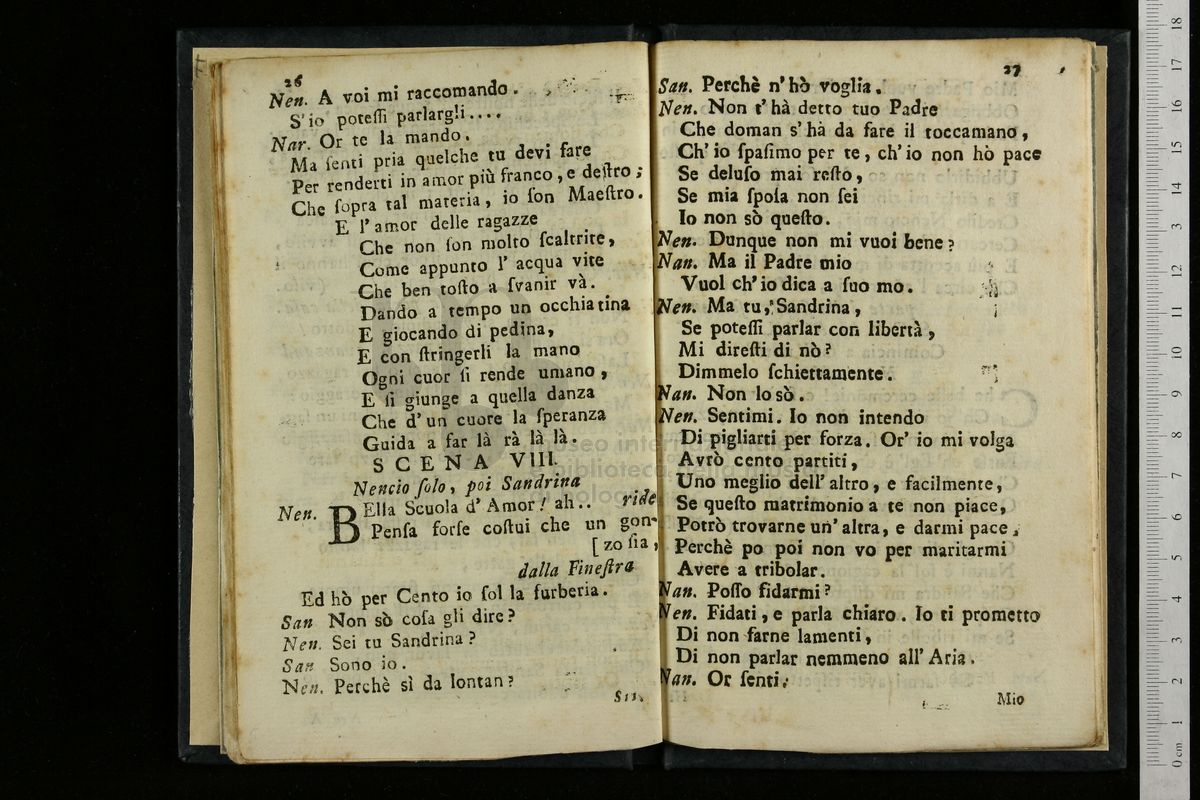 26
Nen. A voi mi raccomando.
S'io poteſſi parlargli....
Nar. Or te la mando.
Ma ſenti pria quelche tu devi fare
Per renderti in amor più franco, e deſtro;
Che ſopra tal materia, io ſon Maeſtro.
E l'amor delle ragazze
Che non ſon molto ſcaltrite,
Come appunto l' acqua vite
Che ben toſto a ſvanir và.
Dando a tempo un occhiatina
E giocando di pedina,
E con ſtringerli la mano
Ogni cuor ſi rende umano,
E ſi giunge a quella danza
Che d'un cuore la ſperanza
Guida a far là rà là là.
SCENA VIII.
Nencio ſolo, poi Sandrina
Nen. BElla Scuola d'Amor! ah.. ride
Penſa forſe coſtui che un gon-
[zo ſia,
dalla Fineſtra
Ed hò per Cento io ſol la furberia.
San Non sò coſa gli dire?
Nen. Sei tu Sandrina?
San Sono io.
Nen. Perchè sì da lontan?
San.
27
San. Perchè n'hò voglia.
Nen. Non t'hà detto tuo Padre
Che doman s'hà da fare il toccamano,
Ch'io ſpaſimo per te, ch'io non hò pace
Se deluſo mai reſto,
Se mia ſpoſa non ſei
Io non sò queſto.
Nen. Dunque non mi vuoi bene?
Nan. Ma il Padre mio
Vuol ch'io dica a ſuo mo.
Nen. Ma tu, Sandrina,
Se poteſſi parlar con libertà,
Mi direſti di nò?
Dimmelo ſchiettamente.
Nan. Non lo sò.
Nen. Sentimi. Io non intendo
Di pigliarti per forza. Or' io mi volga
Avrò cento partiti,
Uno meglio dell'altro, e facilmente,
Se queſto matrimonio a te non piace,
Potrò trovarne un'altra, e darmi pace,
Perchè po poi non vo per maritarmi
Avere a tribolar.
Nan. Poſſo fidarmi?
Nen. Fidati, e parla chiaro. Io ti prometto
Di non farne lamenti,
Di non parlar nemmeno all'Aria.
Nan. Or ſenti.
Mio